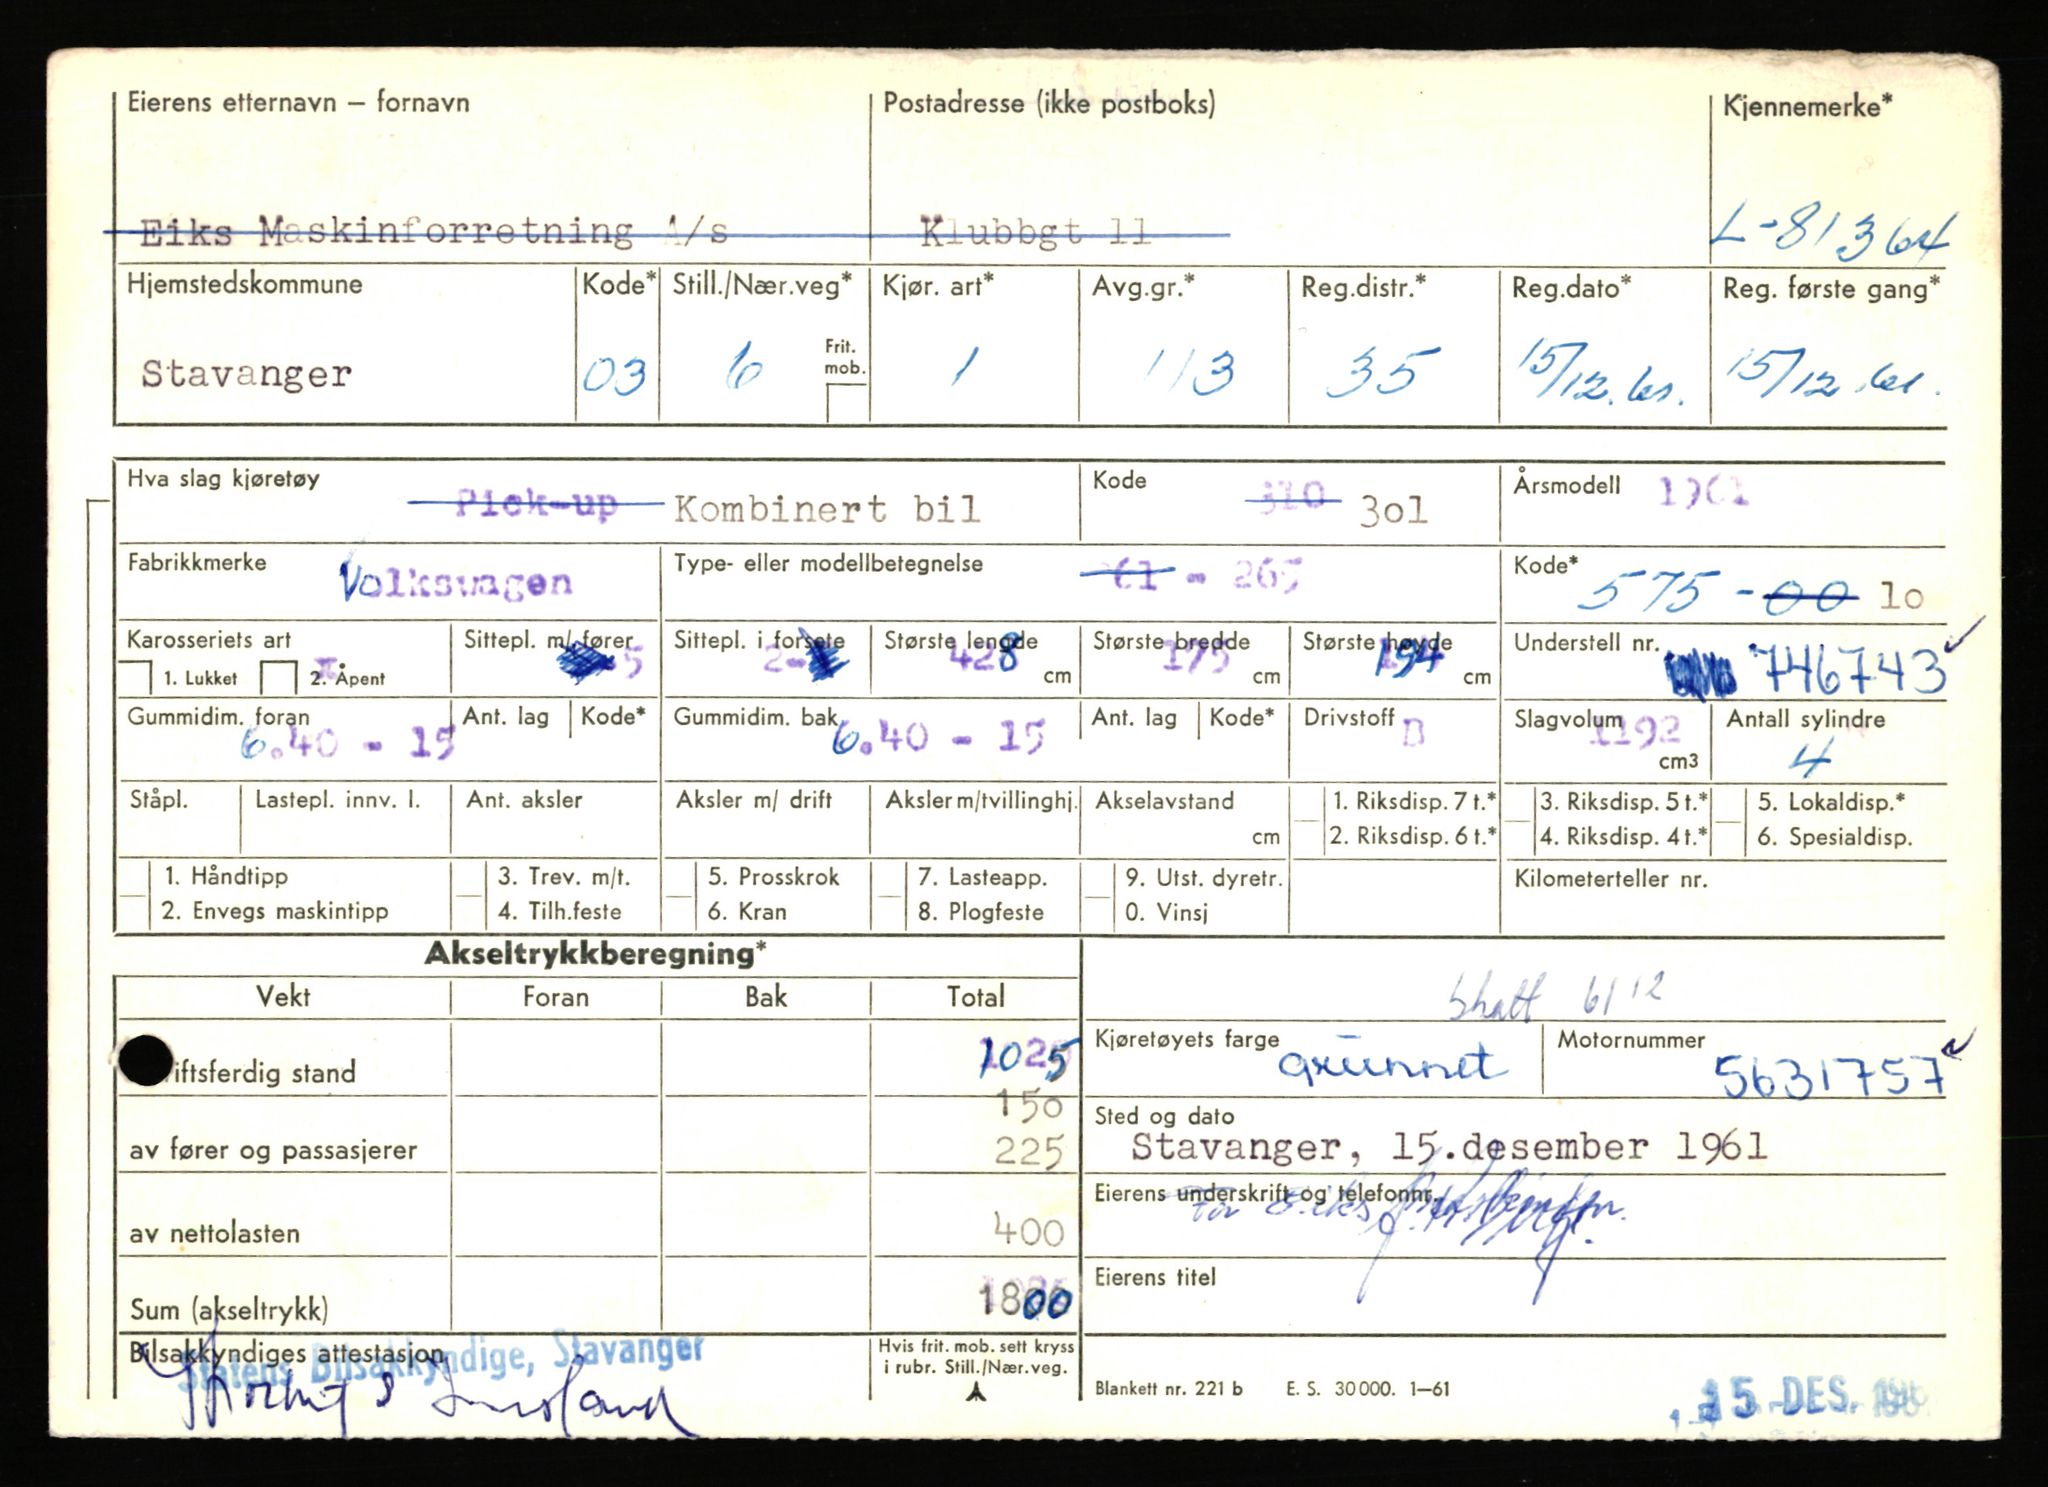 Eierens etternavn – fornavn Postadresse (ikke postboks) Kjennemerke*
Eiks Maskinforretning A/s Klubbgt 11 L-81364
Hjemstedskommune Kode* Still./Nær.veg* Kjør. art* Avg.gr.* Reg.distr.* Reg.dato* Reg. første gang*
Frit. mob.
Stavanger 03 6 1 113 35 15/12.61. 15/12.61.
Hva slag kjøretøy Pick-up Kombinert bil Kode 310 3o1 Årsmodell 1961
Fabrikkmerke Volkswagen Type- eller modellbetegnelse 61 - 265 Kode* 575 - 00 1o
Karosseriets art Sittepl. m/ fører Sittepl. i forsete Største lengde Største bredde Største høyde Understell nr.
1. Lukket 2. Åpent 5 2- 428 cm 175 cm 194 cm 746743
Gummidim. foran Ant. lag Kode* Gummidim. bak Ant. lag Kode* Drivstoff Slagvolum Antall sylindre
6.40 - 15 6.40 - 15 B 1192 cm3 4
Ståpl. Lastepl. innv. l. Ant. aksler Aksler m/ drift Aksler m/tvillinghj. Akselavstand cm 1. Riksdisp. 7 t.* 3. Riksdisp. 5 t.* 5. Lokaldisp.*
2. Riksdisp. 6 t.* 4. Riksdisp. 4 t.* 6. Spesialdisp.
1. Håndtipp 3. Trev. m/t. 5. Prosskrok 7. Lasteapp. 9. Utst. dyretr. Kilometerteller nr.
2. Envegs maskintipp 4. Tilh.feste 6. Kran 8. Plogfeste 0. Vinsj
Akseltrykkberegning*
Vekt Foran Bak Total
Skatt 6/12
iftsferdig stand 1025
Kjøretøyets farge grünnet Motornummer 5631757
150
av fører og passasjerer 225
Sted og dato
Stavanger, 15.desember 1961
av nettolasten 400
Eierens underskrift og telefonnr.
For Eiks
Sum (akseltrykk) 1800
Eierens titel
Bilsakkyndiges attestasjon
Statens Bilsakkyndige, Stavanger
Hvis frit. mob. sett kryss
i rubr. Still./Nær.veg.
Blankett nr. 221 b E. S. 30 000. 1–61
15 DES.